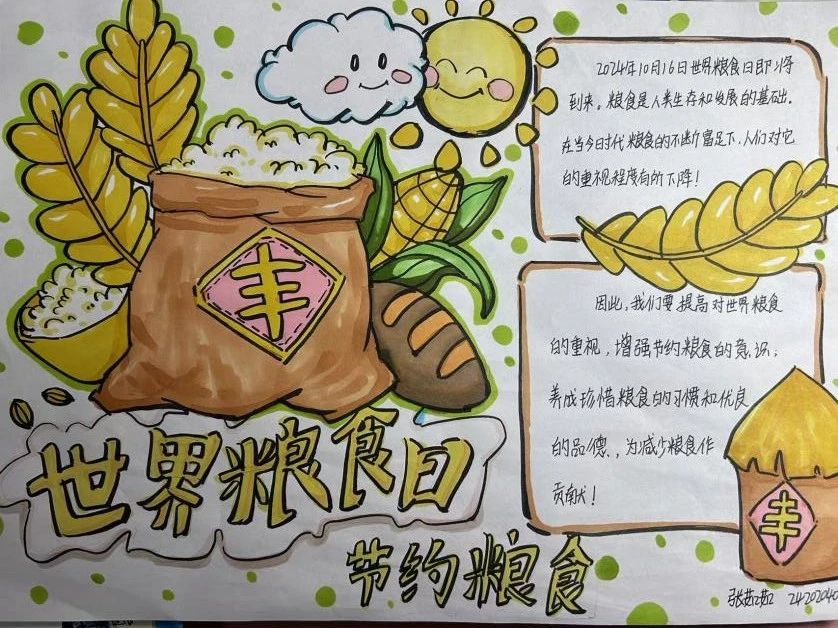 2024年10月16日世界粮食日即将
到来。粮食是人类生存和发展的基础。
在当今时代粮食的不断富足下，人们对它
的重视程度有所下降！
丰
因此，我们要提高对世界粮食
的重视，增强节约粮食的意识；
养成珍惜粮食的习惯和优良
的品德，为减少粮食作
贡献！
世界粮食日
丰
节约粮食
张茹茹 24202040